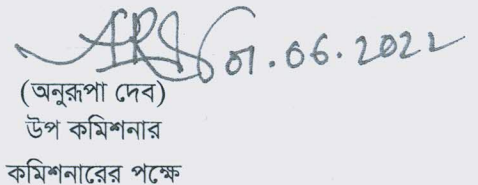 01.06.2022
(অনুরূপা দেব)
উপ কমিশনার
কমিশনারের পক্ষে